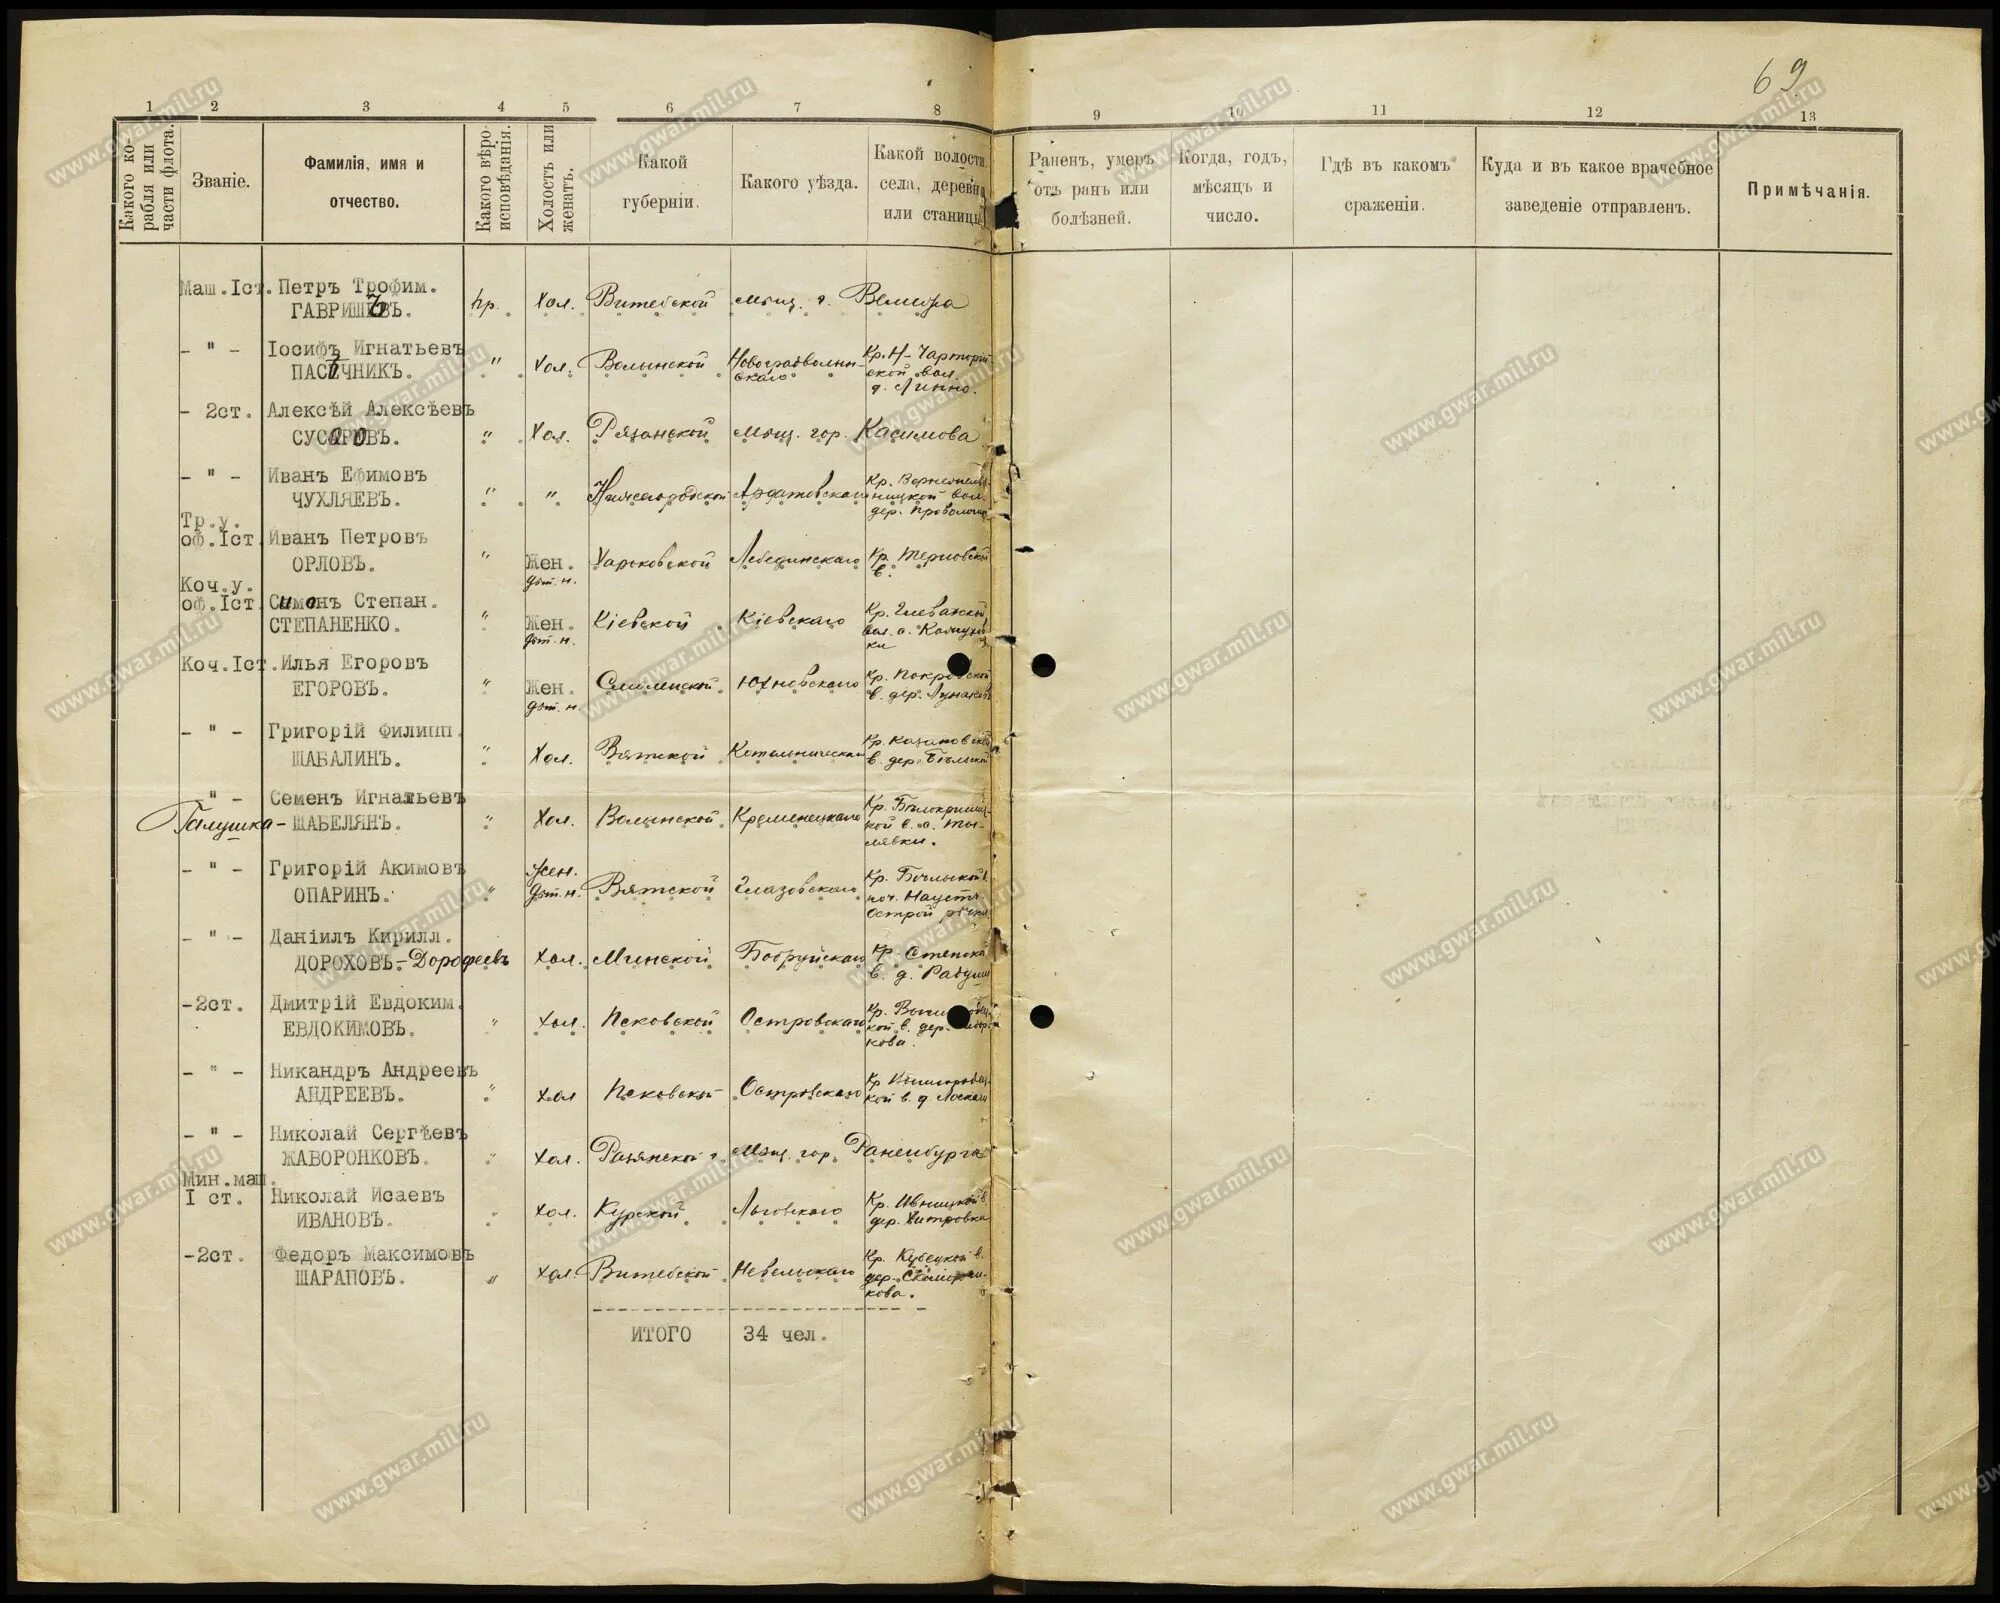 69
1 2 3 4 5 6 7 8 9 10 11 12 13
Какого ко-
рабля или
части флота.
Званіе.
Фамилія, имя и
отчество.
Какого вѣро-
исповѣданія.
Холостъ или
женатъ.
Какой
губерніи.
Какого уѣзда.
Какой волости,
села, деревни
или станицы
Раненъ, умеръ
отъ ранъ или
болѣзней.
Когда, годъ,
мѣсяцъ и
число.
Гдѣ въ какомъ
сраженіи.
Куда и въ какое врачебное
заведеніе отправленъ.
Примѣчанія.
Маш.Iст. Петръ Трофим.
ГАВРИШЕВЪ. пр. Хол. Витебской мѣщ. г. Велижа
- " - Іосифъ Игнатьевъ
ПАСѢЧНИКЪ. " Хол. Волынской Новоградволын-
скаго
Кр. Н-Чарторій-
ской вол.
- 2ст. Алексѣй Алексѣевъ
СУСОРОВЪ. " Хол. Рязанской мѣщ. гор. Касимова
- " - Иванъ Ефимовъ
ЧУХЛЯЕВЪ. " " Нижегородской Ардатовскаго
ницкой вол.
Тр.у.
оф.Iст. Иванъ Петровъ
ОРЛОВЪ. " Жен. Харьковской Лебединскаго Кр. Терновской
дѣт. н. в.
Коч.у.
оф.Iст. Симонъ Степан.
СТЕПАНЕНКО. " Жен. Кіевской Кіевскаго
дѣт. н.
Коч.Iст. Илья Егоровъ
ЕГОРОВЪ. " Жен. Смоленской Юхновскаго Кр. Покровской
дѣт. н. в. дер.
- " - Григорій Филипп.
ШАБАЛИНЪ. " Хол. Вятской Котельническаго
" - Семенъ Игнатьевъ
Галушка - ШАБЕЛЯНЪ. " Хол. Волынской Кременецкаго
Кр. Бѣлокриниц-
кой в. с. Ты-
лявки.
- " - Григорій Акимовъ
ОПАРИНЪ. " Жен. дѣт. н. Вятской Глазовскаго
Острой рѣчки.
- " - Даніилъ Кирилл.
ДОРОХОВЪ.-Дорофеевъ Хол. Минской Бобруйскаго
-2ст. Дмитрій Евдоким.
ЕВДОКИМОВЪ. " Хол. Псковской Островскаго
- " - Никандръ Андреевъ
АНДРЕЕВЪ. " Хол Псковской Островскаго
- " - Николай Сергѣевъ
ЖАВОРОНКОВЪ. " Хол. Рязанской г. Мѣщ. гор. Раненбурга
Мин.маш.
I ст. Николай Исаевъ
ИВАНОВЪ. " Хол. Курской Льговскаго
Кр. Ивницкой в.
дер. Хитровки
-2ст. Федоръ Максимовъ
ШАРАПОВЪ. " Хол. Витебской Невельскаго
ИТОГО 34 чел.
www.gwar.mil.ru